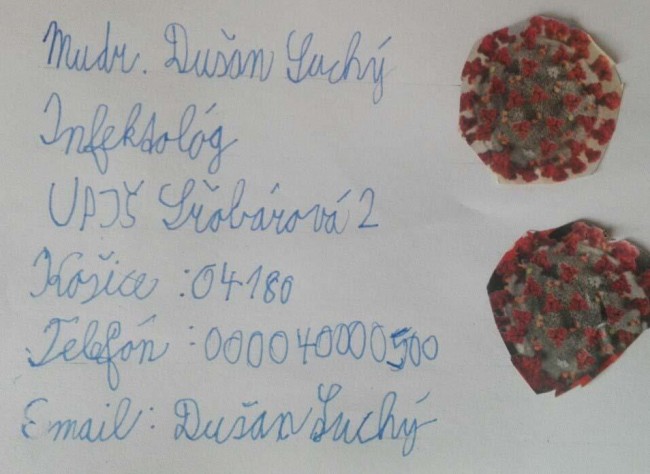 Mudr. Dušan Suchý
Infektológ
UPJŠ Šrobárová 2
Košice : 04180
Telefón : 000040000500
Email : Dušan Suchý